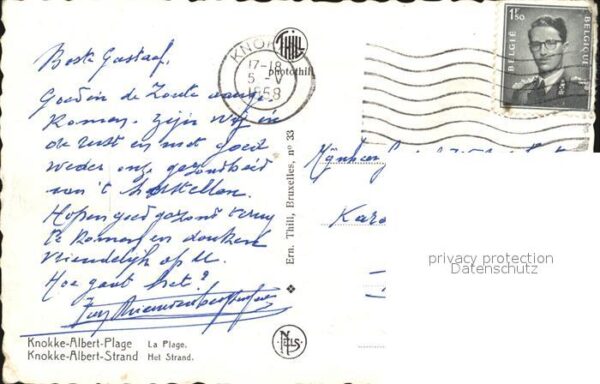 Beste Gustaaf.
Goed in de Zoute aange-
komen. zijn wij in
de rust en met goed
weder onze gezondheid
aan 't herstellen.
Hopen goed gezond terug
te komen en danken
vriendelijk op de
Hoe gaat het?
Knokke-Albert-Plage La Plage.
Knokke-Albert-Strand Het Strand.
Ern. Thill, Bruxelles, nº 33
THILL
photothill
KNOK
17-18
5 - V
1958
NELS
1F50
BELGIË
BELGIQUE
Mijnheer
privacy protection
Datenschutz